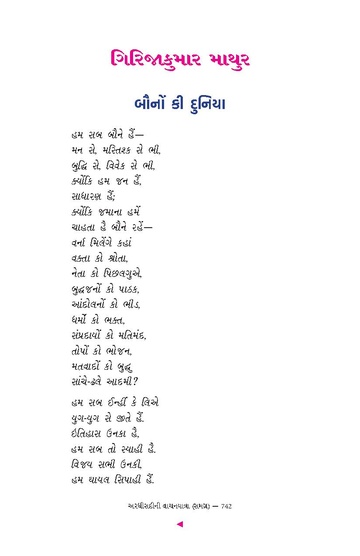 ગિરિજાકુમાર માથુર
બૌનોં કી દુનિયા
હમ સબ બૌને હૈં—
મન સે, મસ્તિશ્ક સે ભી,
બુદ્ધિ સે, વિવેક સે ભી,
ક્યોંકિ હમ જન હૈં,
સાધારણ હૈં;
ક્યોંકિ જમાના હમેં
ચાહતા હૈ બૌને રહેં—
વર્ના મિલેંગે કહાં
વક્તા કો શ્રોતા,
નેતા કો પિછલગુએ,
બુદ્ધજનોં કો પાઠક,
આંદોલનોં કો ભીડ,
ધર્મોં કો ભક્ત,
સંપ્રદાયોં કો મતિમંદ,
તોપોં કો ભોજન,
મતવાદોં કો બુદ્ધુ
સાંચે-ઢલે આદમી?
હમ સબ ઈન્હીં કે લિએ
યુગ-યુગ સે જીતે હૈં.
ઇતિહાસ ઉનકા હૈ,
હમ સબ તો સ્યાહી હૈ.
વિજય સભી ઉનકી,
હમ ઘાયલ સિપાહી હૈં.
અરધીસદીની વાચનયાત્રા (સમગ્ર) — 742